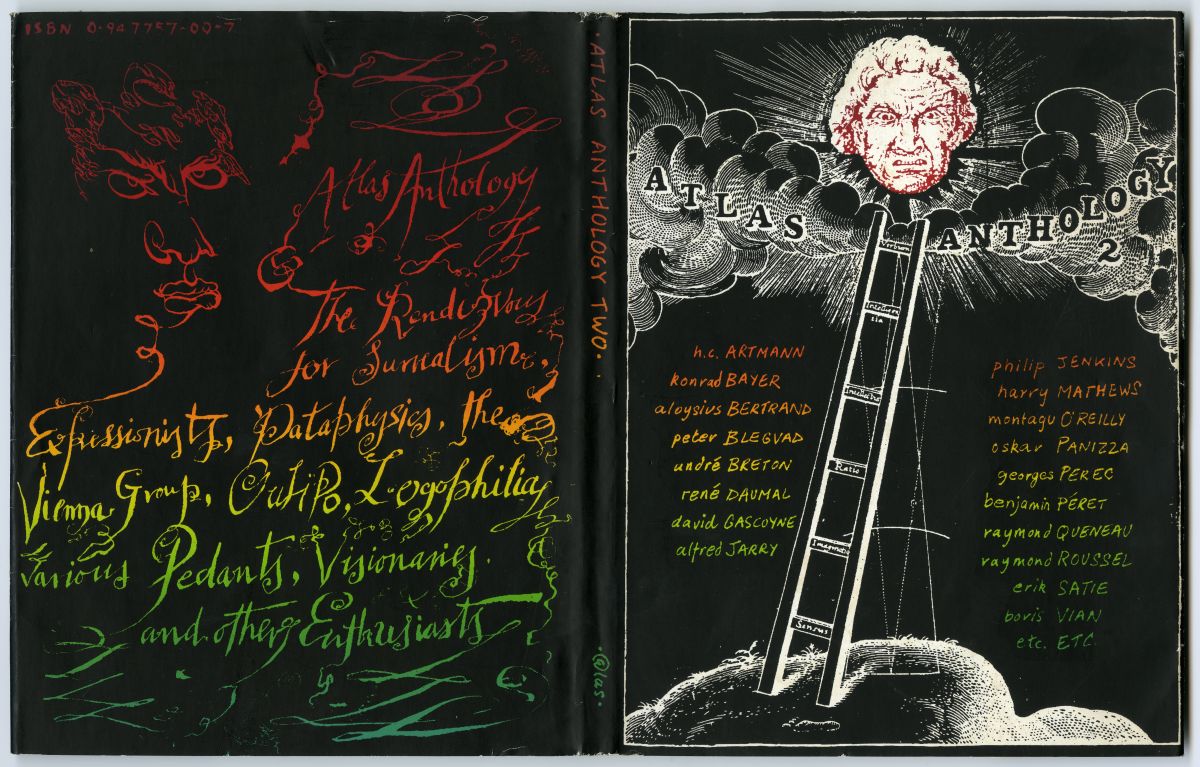 ISBN 0-947757-00-7
Atlas Anthology
The Rendezvous
for Surrealism,
Expressionists, Pataphysics, the
Vienna Group, OuLiPo, Logophilia,
Various Pedants, Visionaries.
and others Enthusiasts
·ATLAS ANTHOLOGY TWO·
·@las·
ATLAS ANTHOLOGY
2
Verbum
Intellectus
Ratio
Imaginatio
Sensus
h.c. ARTMANN
konrad BAYER
aloysius BERTRAND
peter BLEGVAD
andré BRETON
rené DAUMAL
david GASCOYNE
alfred JARRY
philip JENKINS
harry MATHEWS
montagu O'REILLY
oskar PANIZZA
georges PEREC
benjamin PÉRET
raymond QUENEAU
raymond ROUSSEL
erik SATIE
boris VIAN
etc. ETC.